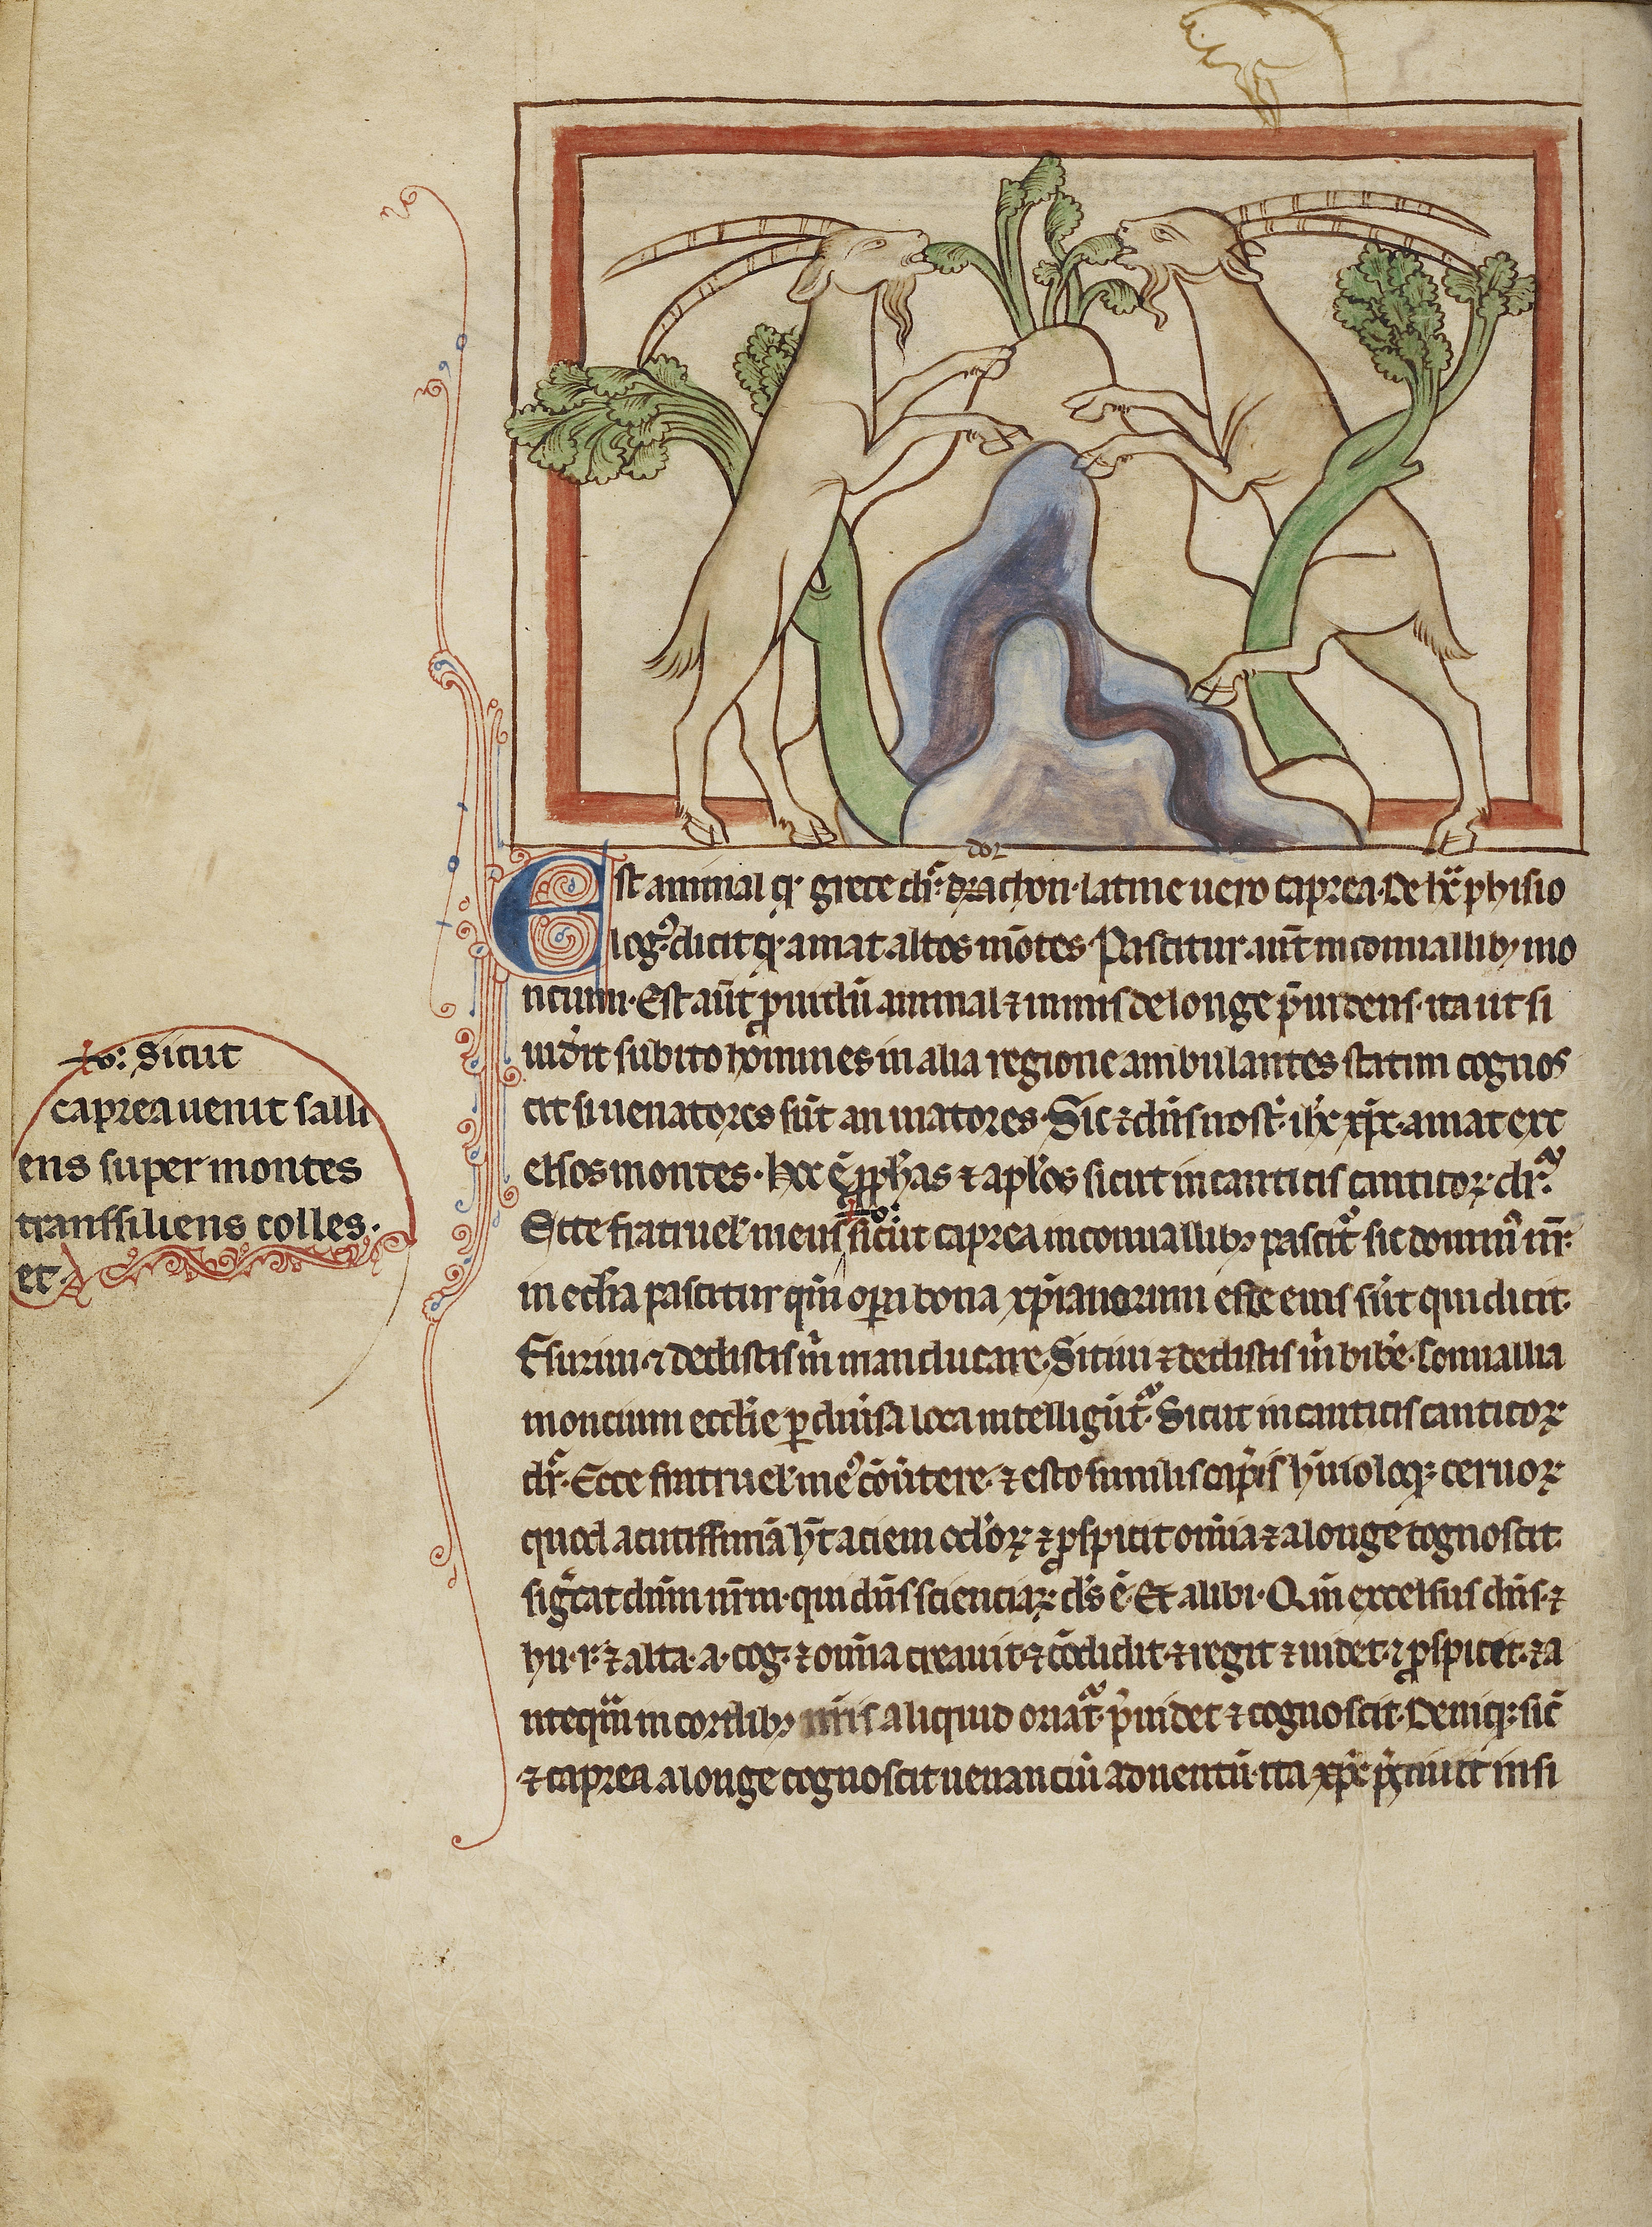 dor
Est animal qͥ grece dr̄ drachon. latine uero caprea. De hͨ phisio
logꝰ dicit qͥ amat altos mōtes. Pascitur aut̄ in conuallibꝫ mo
ncium. Est aut̄ ꝓuidū animal ⁊ nimis de longe p̄uidens. ita ut si
uid̄it subito homines in alia regione ambulantes statim cognos
cit si uenatores sūt an uiatores. Sic ⁊ dn̄s nost̄. ih̄c xp̄c. amat exc
elsos montes. hͨ ē ꝓph̄as ⁊ apl̄os sicut in canticis canticoꝝ dr̄.
Ecce fratruel̄ meus sicut caprea in conuallibꝫ pascitͬ sic dominꝰ nr̄.
in eccl̄ia pascitur qm̄ oꝑa bona xp̄ianorum esce eius sūt qui dicit.
Esuriui ⁊ dedistis m̄ manducare. Sitiui ⁊ dedistis m̄ bib̄e. Conuallia
moncium eccl̄ie ꝑ diuersa loca intelligūtͬ. Sicut in canticis canticoꝝ
dr̄. Ecce fratruel̄ meꝰ cōūtere. ⁊ esto similis cap̄is hīnuloqꝫ ceruoꝝ
quod acutissimā h̄t aciem ocl̄oꝝ ⁊ ꝑspicit om̄ia ⁊ a longe cognoscit.
siḡcat dn̄m nr̄m. qui dn̄s scienciaꝝ ds̄ ē. Et alibi. Qm̄ excelsus dn̄s. ⁊
hu. r. ⁊ alta. a. cog. ⁊ om̄ia creauit. ⁊ cōdidit. ⁊ regit ⁊ uidet. ⁊ ꝓspicit. ⁊ a
ntequā in cordibꝫ nr̄is aliquid oriatͬ. p̄uidet ⁊ cognoscit. Deniqꝫ sic̄
⁊ caprea a longe cognoscit uenanciū aduentū. ita xp̄c p̄sciuit insi
ꝟo: Sicut
caprea uenit salli
ens super montes
transsiliens colles.
et.